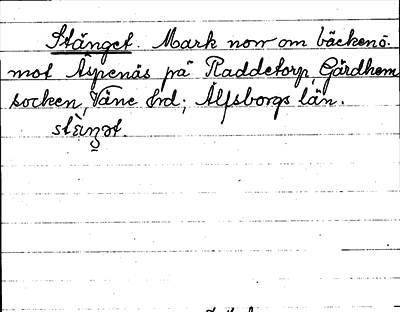 Stänget. Mark norr om bäcken ö.
mot Aspenäs på Raddetorp, Gärdhem
socken, Väne hd; Älfsborgs län.
stäŋət.